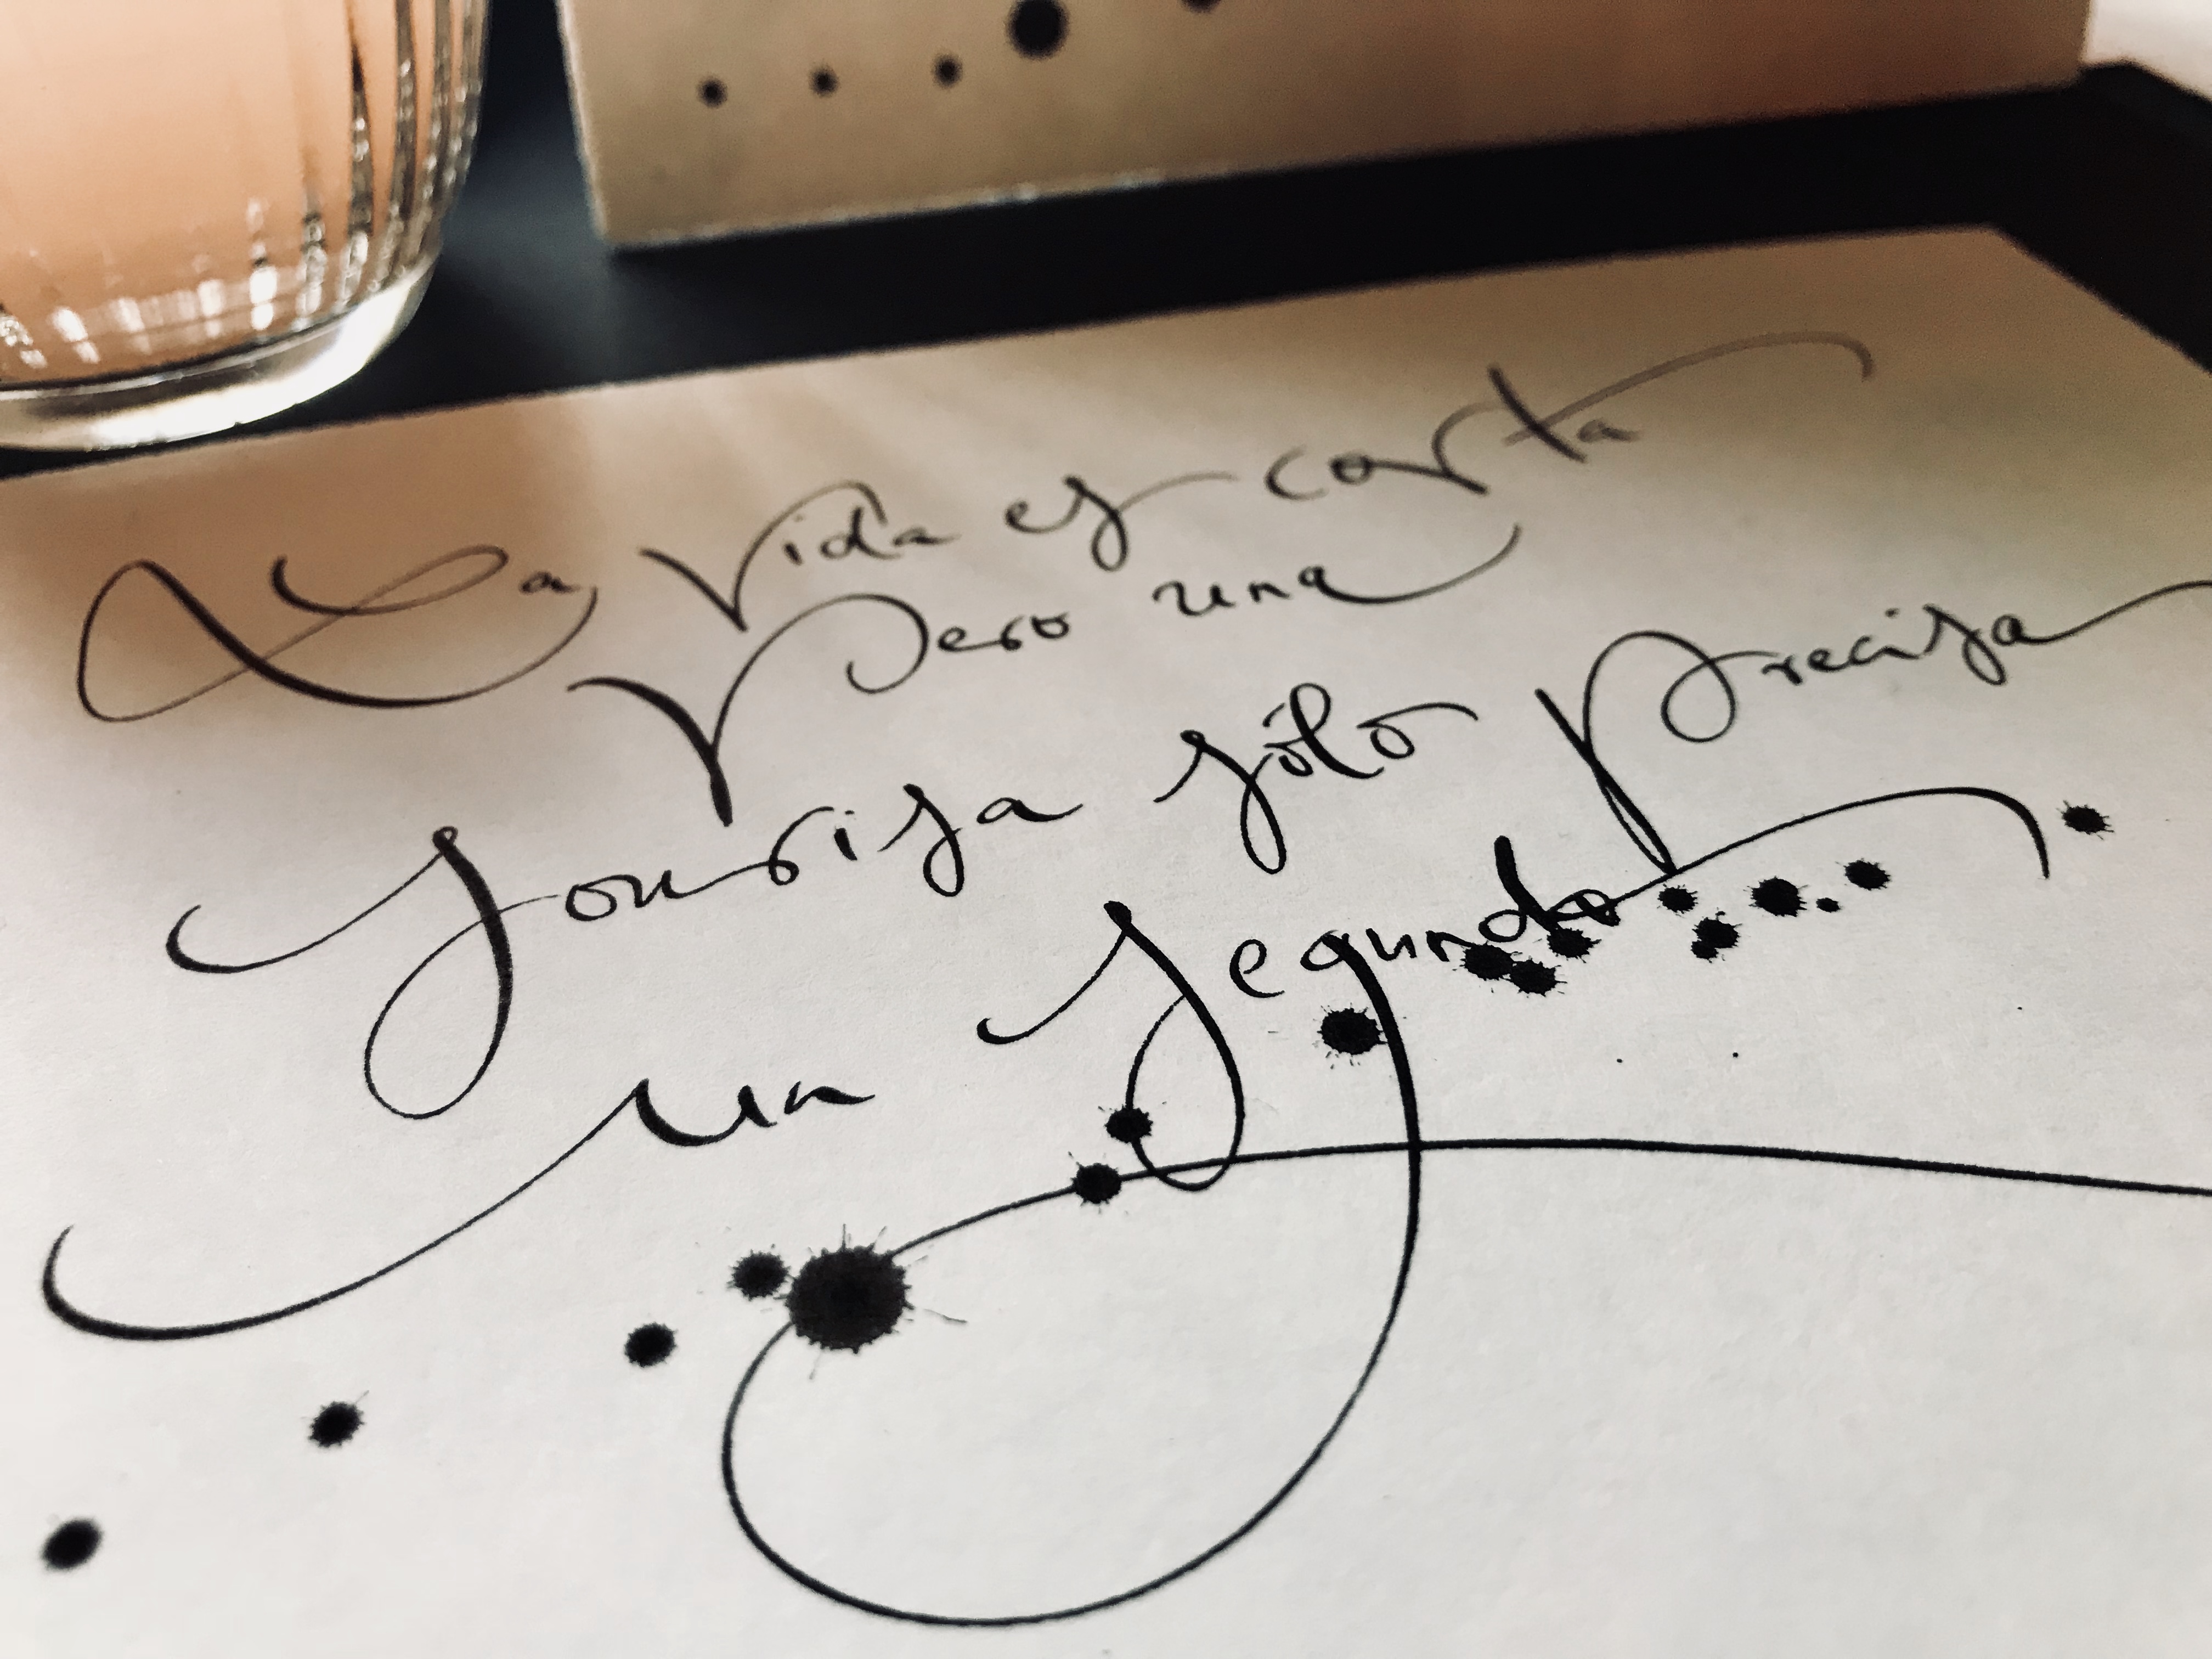 La vida es corta
Pero una
sonrisa sólo precisa
un segundo